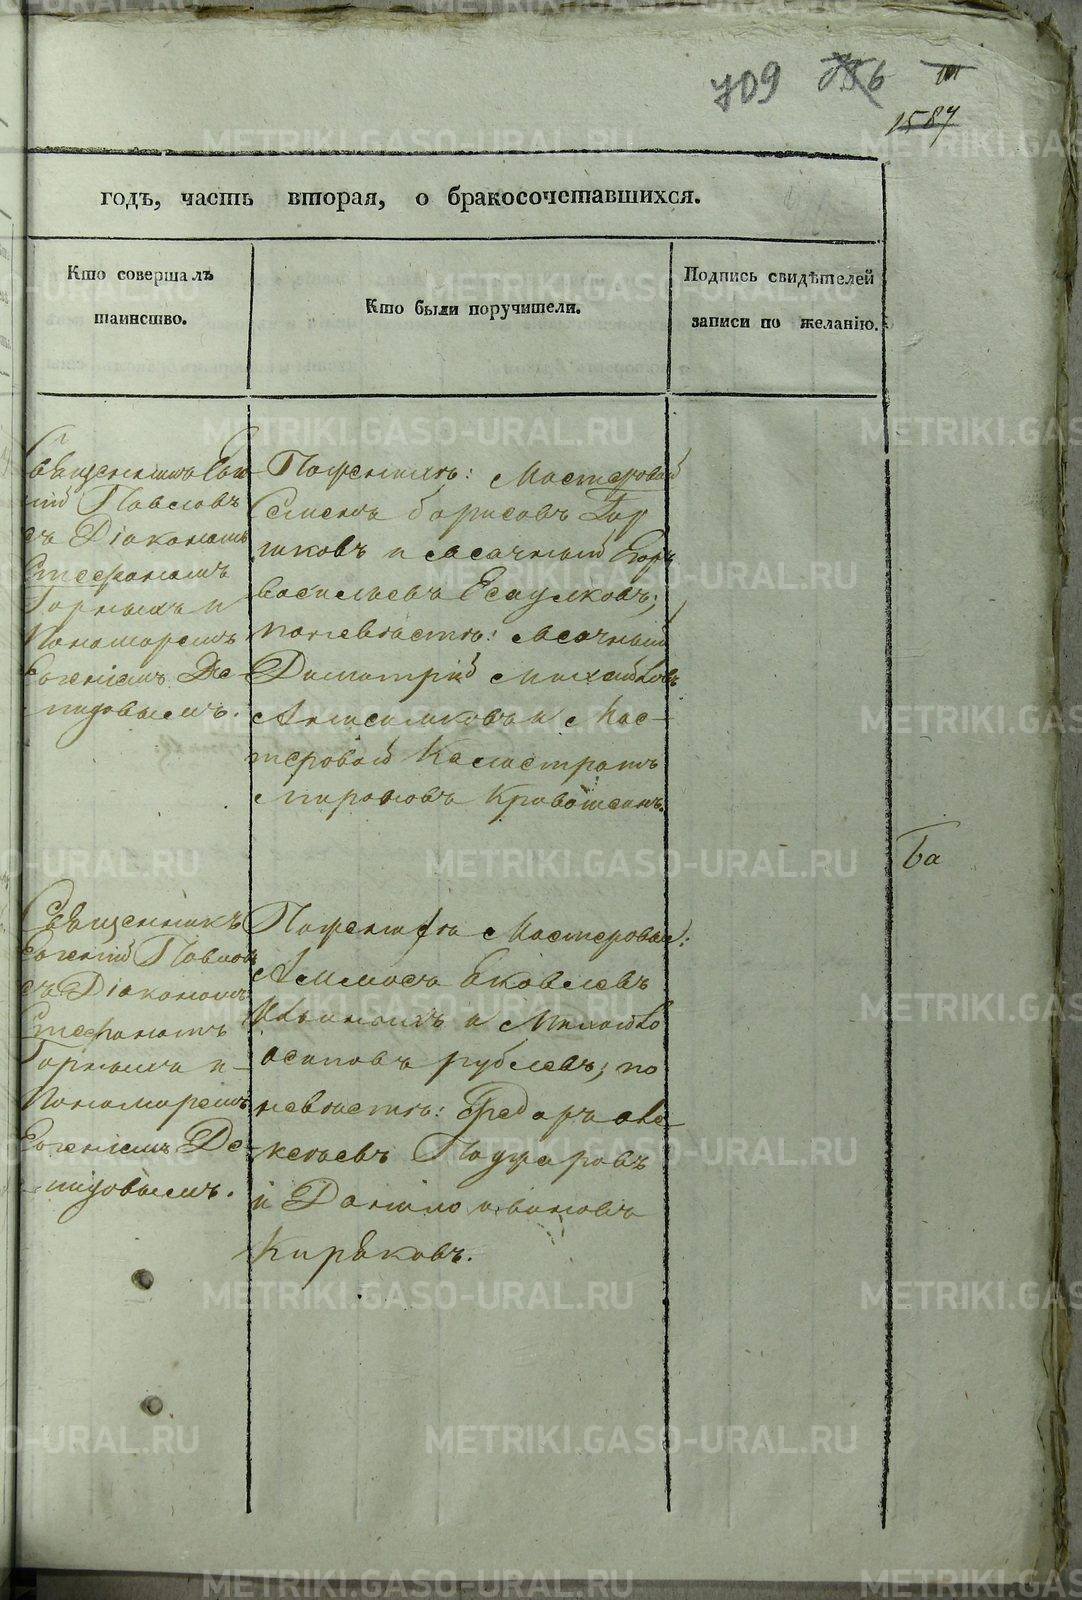 709 756
1587
годъ, часть вторая, о бракосочетавшихся.
Кто совершалъ
таинство.
Кто были поручители.
Подпись свидѣтелей
записи по желанію.
Священникъ Евге
ній Павловъ
съ Діакономъ
Стефаномъ
Горныхъ и
Пономаремъ
Евгеніемъ Де
мидовымъ.
Поженихѣ: Мастеровой
Семенъ борисовъ Гор
шковъ и мсачный Егоръ
васильевъ Есаулковъ;
поневѣстѣ: мсачный
Димитрій михайловъ
Анисимковъ и Мас-
теровой Калистратъ
мироновъ Кривошеинъ.
Ба
Священникъ
Евгеній Павловъ
съ Діакономъ
Стефаномъ
Горнымъ и
Пономаремъ
Евгеніемъ Де-
мидовымъ.
Поженихѣ Мастеровые:
Аммосъ Яковлевъ
Ильиныхъ и Михайло
осиповъ рублевъ; по
невѣстѣ: Федоръ але
ксѣевъ Пожаровъ
и Данило ивановъ
Киряковъ.
METRIKI.GASO-URAL.RU